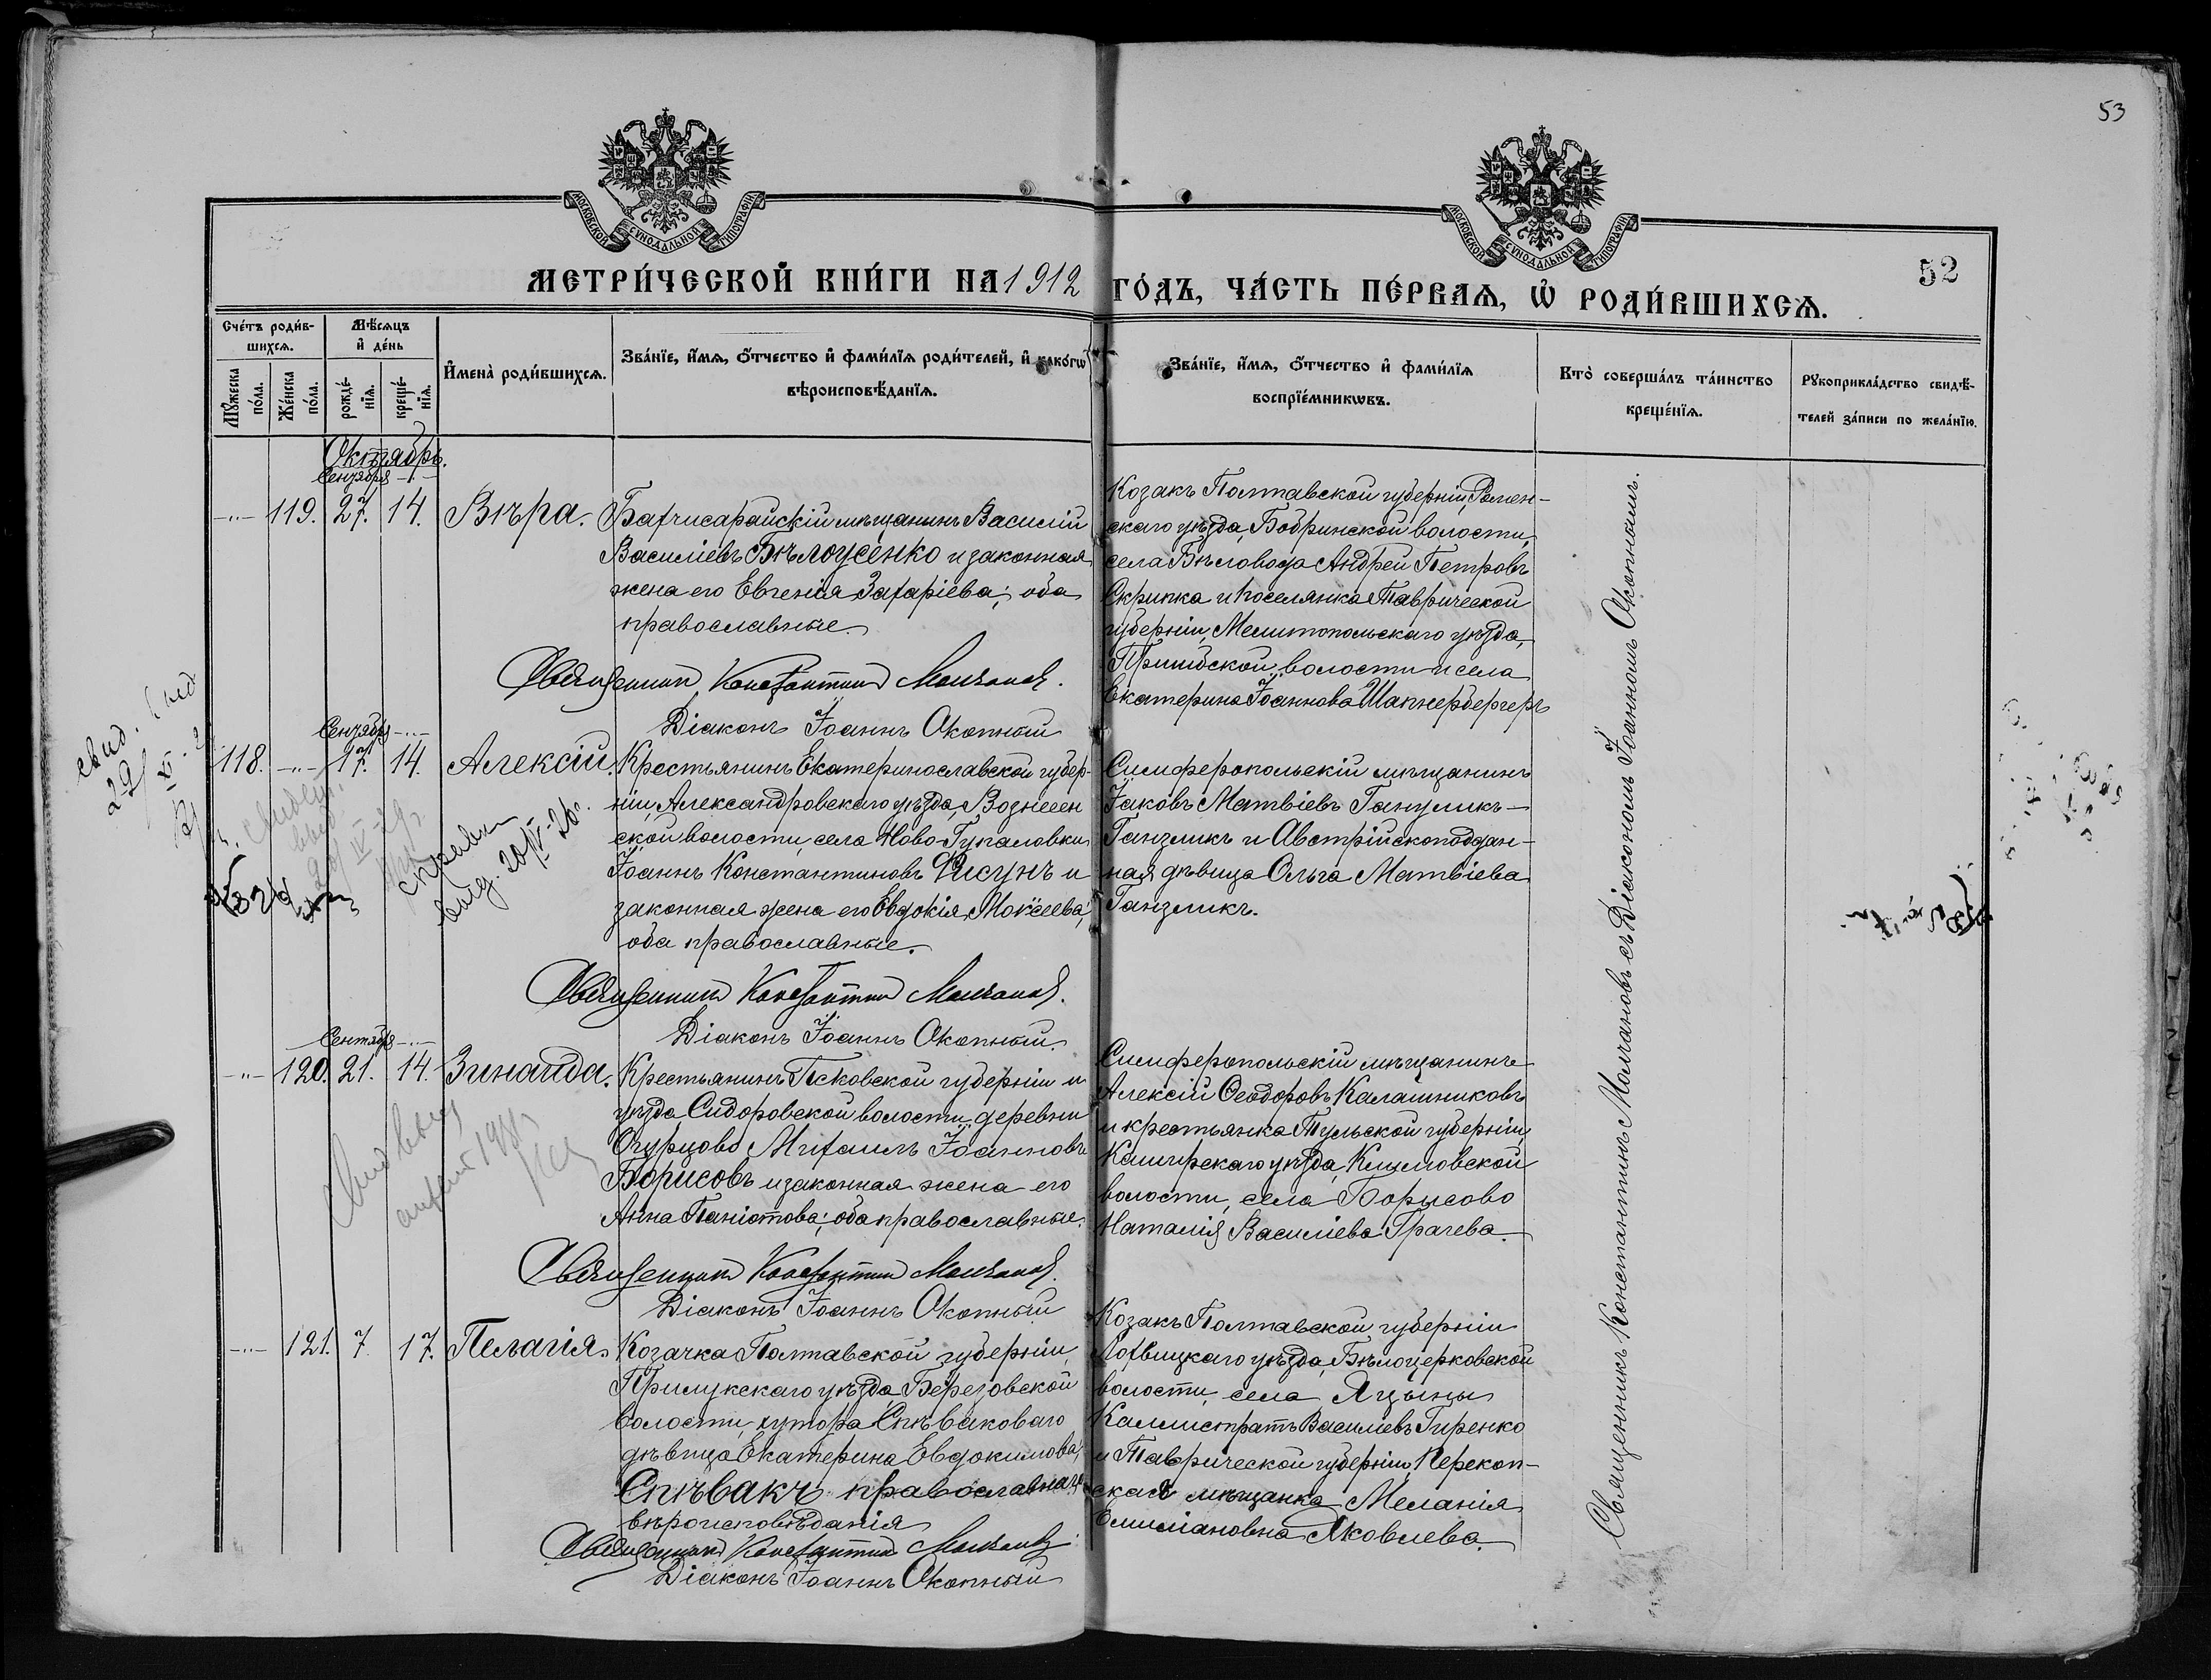 53
МОСКОВСКОЙ СѴНОДАЛЬНОЙ ТИПОГРАФІИ
МОСКОВСКОЙ СѴНОДАЛЬНОЙ ТИПОГРАФІИ
МЕТРИ́ЧЕСКОЙ КНИ́ГИ НА 1912 ГО́ДЪ, ЧА́СТЬ ПЕ́РВАѦ, Ѡ҆ РОДИ́ВШИХСѦ.
52
Сче́тъ роди́в-
шихсѧ.
Мꙋ́жеска по́ла.
Же́нска по́ла.
Мѣ́сѧцъ
и҆ де́нь
рожде́-
нїѧ.
креще́-
нїѧ.
И҆мена̀ роди́вшихсѧ.
Зва́нїе, и҆́мѧ, ѻ҆́тчество и҆ фами́лїѧ роди́телей, и҆ како́гѡ
вѣроисповѣ́данїѧ.
Зва́нїе, и҆́мѧ, ѻ҆́тчество и҆ фами́лїѧ
воспрїе́мникѡвъ.
Кто̀ соверша́лъ та́инство
креще́нїѧ.
Рꙋкоприкла́дство свидѣ́-
телей за́писи по жела́нїю.
Октябрь.
Сентября -"-
-"- 119. 27. 14. Вѣра.
Бахчисарайскій мѣщанинъ Василій
Василіевъ Бѣлоусенко и законная
жена его Евгенія Захаріева; оба
православные.
Священникъ Константинъ Молчановъ.
Діаконъ Іоаннъ Окопный
Козакъ Полтавской губерніи, Ромен-
скаго уѣзда, Бобринской волости,
села Бѣловода Андрей Петровъ
Скрипка и поселянка Таврической
губерніи, Мелитопольскаго уѣзда,
Пришибской волости и села
Екатерина Іоаннова Шапнербергеръ
Сентября -"-
118. -"- 17. 14. Алексій.
Крестьянинъ Екатеринославской губер-
ніи, Александровскаго уѣзда, Вознесен
ской волости, села Ново-Гупаловки
Іоаннъ Константиновъ Фисунъ и
законная жена его Евдокія Моѵсеева;
оба православные.
Священникъ Константинъ Молчановъ.
Діаконъ Іоаннъ Окопный.
Симферопольскій мѣщанинъ
Іаковъ Матвіевъ Ганзликъ-
Ганзликъ и Австрійскоподдан-
ная дѣвица Ольга Матвіева
Ганзликъ.
Сентября -"-
-"- 120. 21. 14. Зинаида.
Крестьянинъ Псковской губерніи и
уѣзда Сидоровской волости, деревни
Огурцово Михаилъ Іоанновъ
Борисовъ и законная жена его
Анна Паніотова; оба православные.
Священникъ Константинъ Молчановъ.
Діаконъ Іоаннъ Окопный
Симферопольскій мѣщанинъ
Алексій Ѳеодоровъ Калашниковъ
и крестьянка Тульской губерніи,
Каширскаго уѣзда,
волости, села Борисово
Наталія Василіева Грачева.
-"- 121. 7. 17. Пелагія.
Козачка Полтавской губерніи,
Прилукскаго уѣзда, Березовской
волости, хутора Спѣваковаго
дѣвица Екатерина Евдокимова
Спѣвакъ православнаго
вѣроисповѣданія
Священникъ Константинъ Молчановъ
Діаконъ Іоаннъ Окопный
Козакъ Полтавской губерніи
Лохвицкаго уѣзда, Бѣлоцерковской
волости, села Яцыны
Каллистратъ Василіевъ Гиренко
и Таврической губерніи, Перекоп-
ская мѣщанка Меланія
Емиліановна Яковлева.
Священникъ Константинъ Молчановъ съ Діакономъ Іоанномъ Окопнымъ.